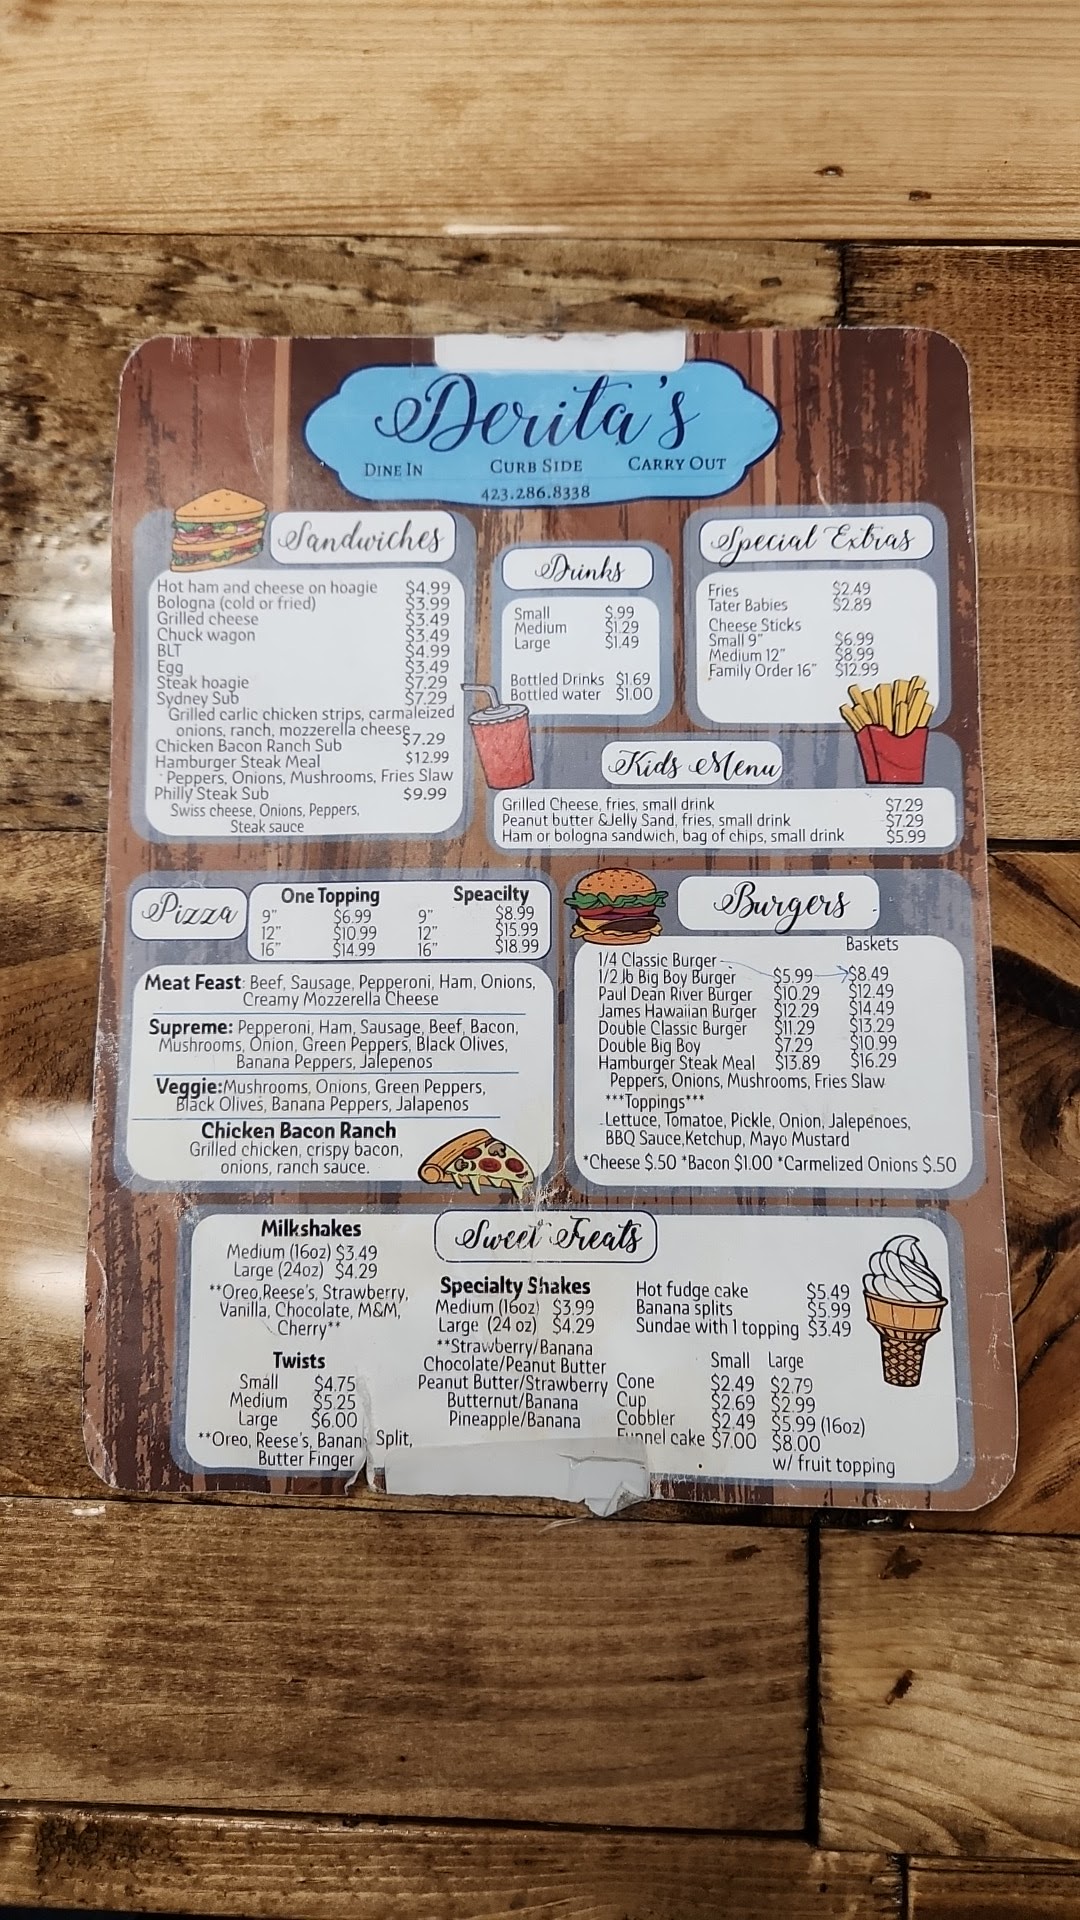 Derita's
DINE IN CURB SIDE CARRY OUT
423.286.8338
Sandwiches
Hot ham and cheese on hoagie $4.99
Bologna (cold or fried) $3.99
Grilled cheese $3.49
Chuck wagon $3.49
BLT $4.99
Egg $3.49
Steak hoagie $7.29
Sydney Sub $7.29
Grilled carlic chicken strips, carmaleized
onions, ranch, mozzerella cheese
Chicken Bacon Ranch Sub $7.29
Hamburger Steak Meal $12.99
Peppers, Onions, Mushrooms, Fries Slaw
Philly Steak Sub $9.99
Swiss cheese, Onions, Peppers,
Steak sauce
Drinks
Small $.99
Medium $1.29
Large $1.49
Bottled Drinks $1.69
Bottled water $1.00
Special Extras
Fries $2.49
Tater Babies $2.89
Cheese Sticks
Small 9" $6.99
Medium 12" $8.99
Family Order 16" $12.99
Kids Menu
Grilled Cheese, fries, small drink $7.29
Peanut butter &Jelly Sand, fries, small drink $7.29
Ham or bologna sandwich, bag of chips, small drink $5.99
Pizza
One Topping Speacilty
9" $6.99 9" $8.99
12" $10.99 12" $15.99
16" $14.99 16" $18.99
Meat Feast: Beef, Sausage, Pepperoni, Ham, Onions,
Creamy Mozzerella Cheese
Supreme: Pepperoni, Ham, Sausage, Beef, Bacon,
Mushrooms, Onion, Green Peppers, Black Olives,
Banana Peppers, Jalepenos
Veggie:Mushrooms, Onions, Green Peppers,
Black Olives, Banana Peppers, Jalapenos
Chicken Bacon Ranch
Grilled chicken, crispy bacon,
onions, ranch sauce.
Burgers
Baskets
1/4 Classic Burger
1/2 lb Big Boy Burger $5.99 $8.49
Paul Dean River Burger $10.29 $12.49
James Hawaiian Burger $12.29 $14.49
Double Classic Burger $11.29 $13.29
Double Big Boy $7.29 $10.99
Hamburger Steak Meal $13.89 $16.29
Peppers, Onions, Mushrooms, Fries Slaw
***Toppings***
Lettuce, Tomatoe, Pickle, Onion, Jalepenoes,
BBQ Sauce,Ketchup, Mayo Mustard
*Cheese $.50 *Bacon $1.00 *Carmelized Onions $.50
Sweet Treats
Milkshakes
Medium (16oz) $3.49
Large (24oz) $4.29
**Oreo,Reese's, Strawberry,
Vanilla, Chocolate, M&M,
Cherry**
Twists
Small $4.75
Medium $5.25
Large $6.00
**Oreo, Reese's, Banan Split,
Butter Finger
Specialty Shakes
Medium (16oz) $3.99
Large (24 oz) $4.29
**Strawberry/Banana
Chocolate/Peanut Butter
Peanut Butter/Strawberry
Butternut/Banana
Pineapple/Banana
Hot fudge cake $5.49
Banana splits $5.99
Sundae with 1 topping $3.49
Small Large
Cone $2.49 $2.79
Cup $2.69 $2.99
Cobbler $2.49 $5.99 (16oz)
Funnel cake $7.00 $8.00
w/ fruit topping